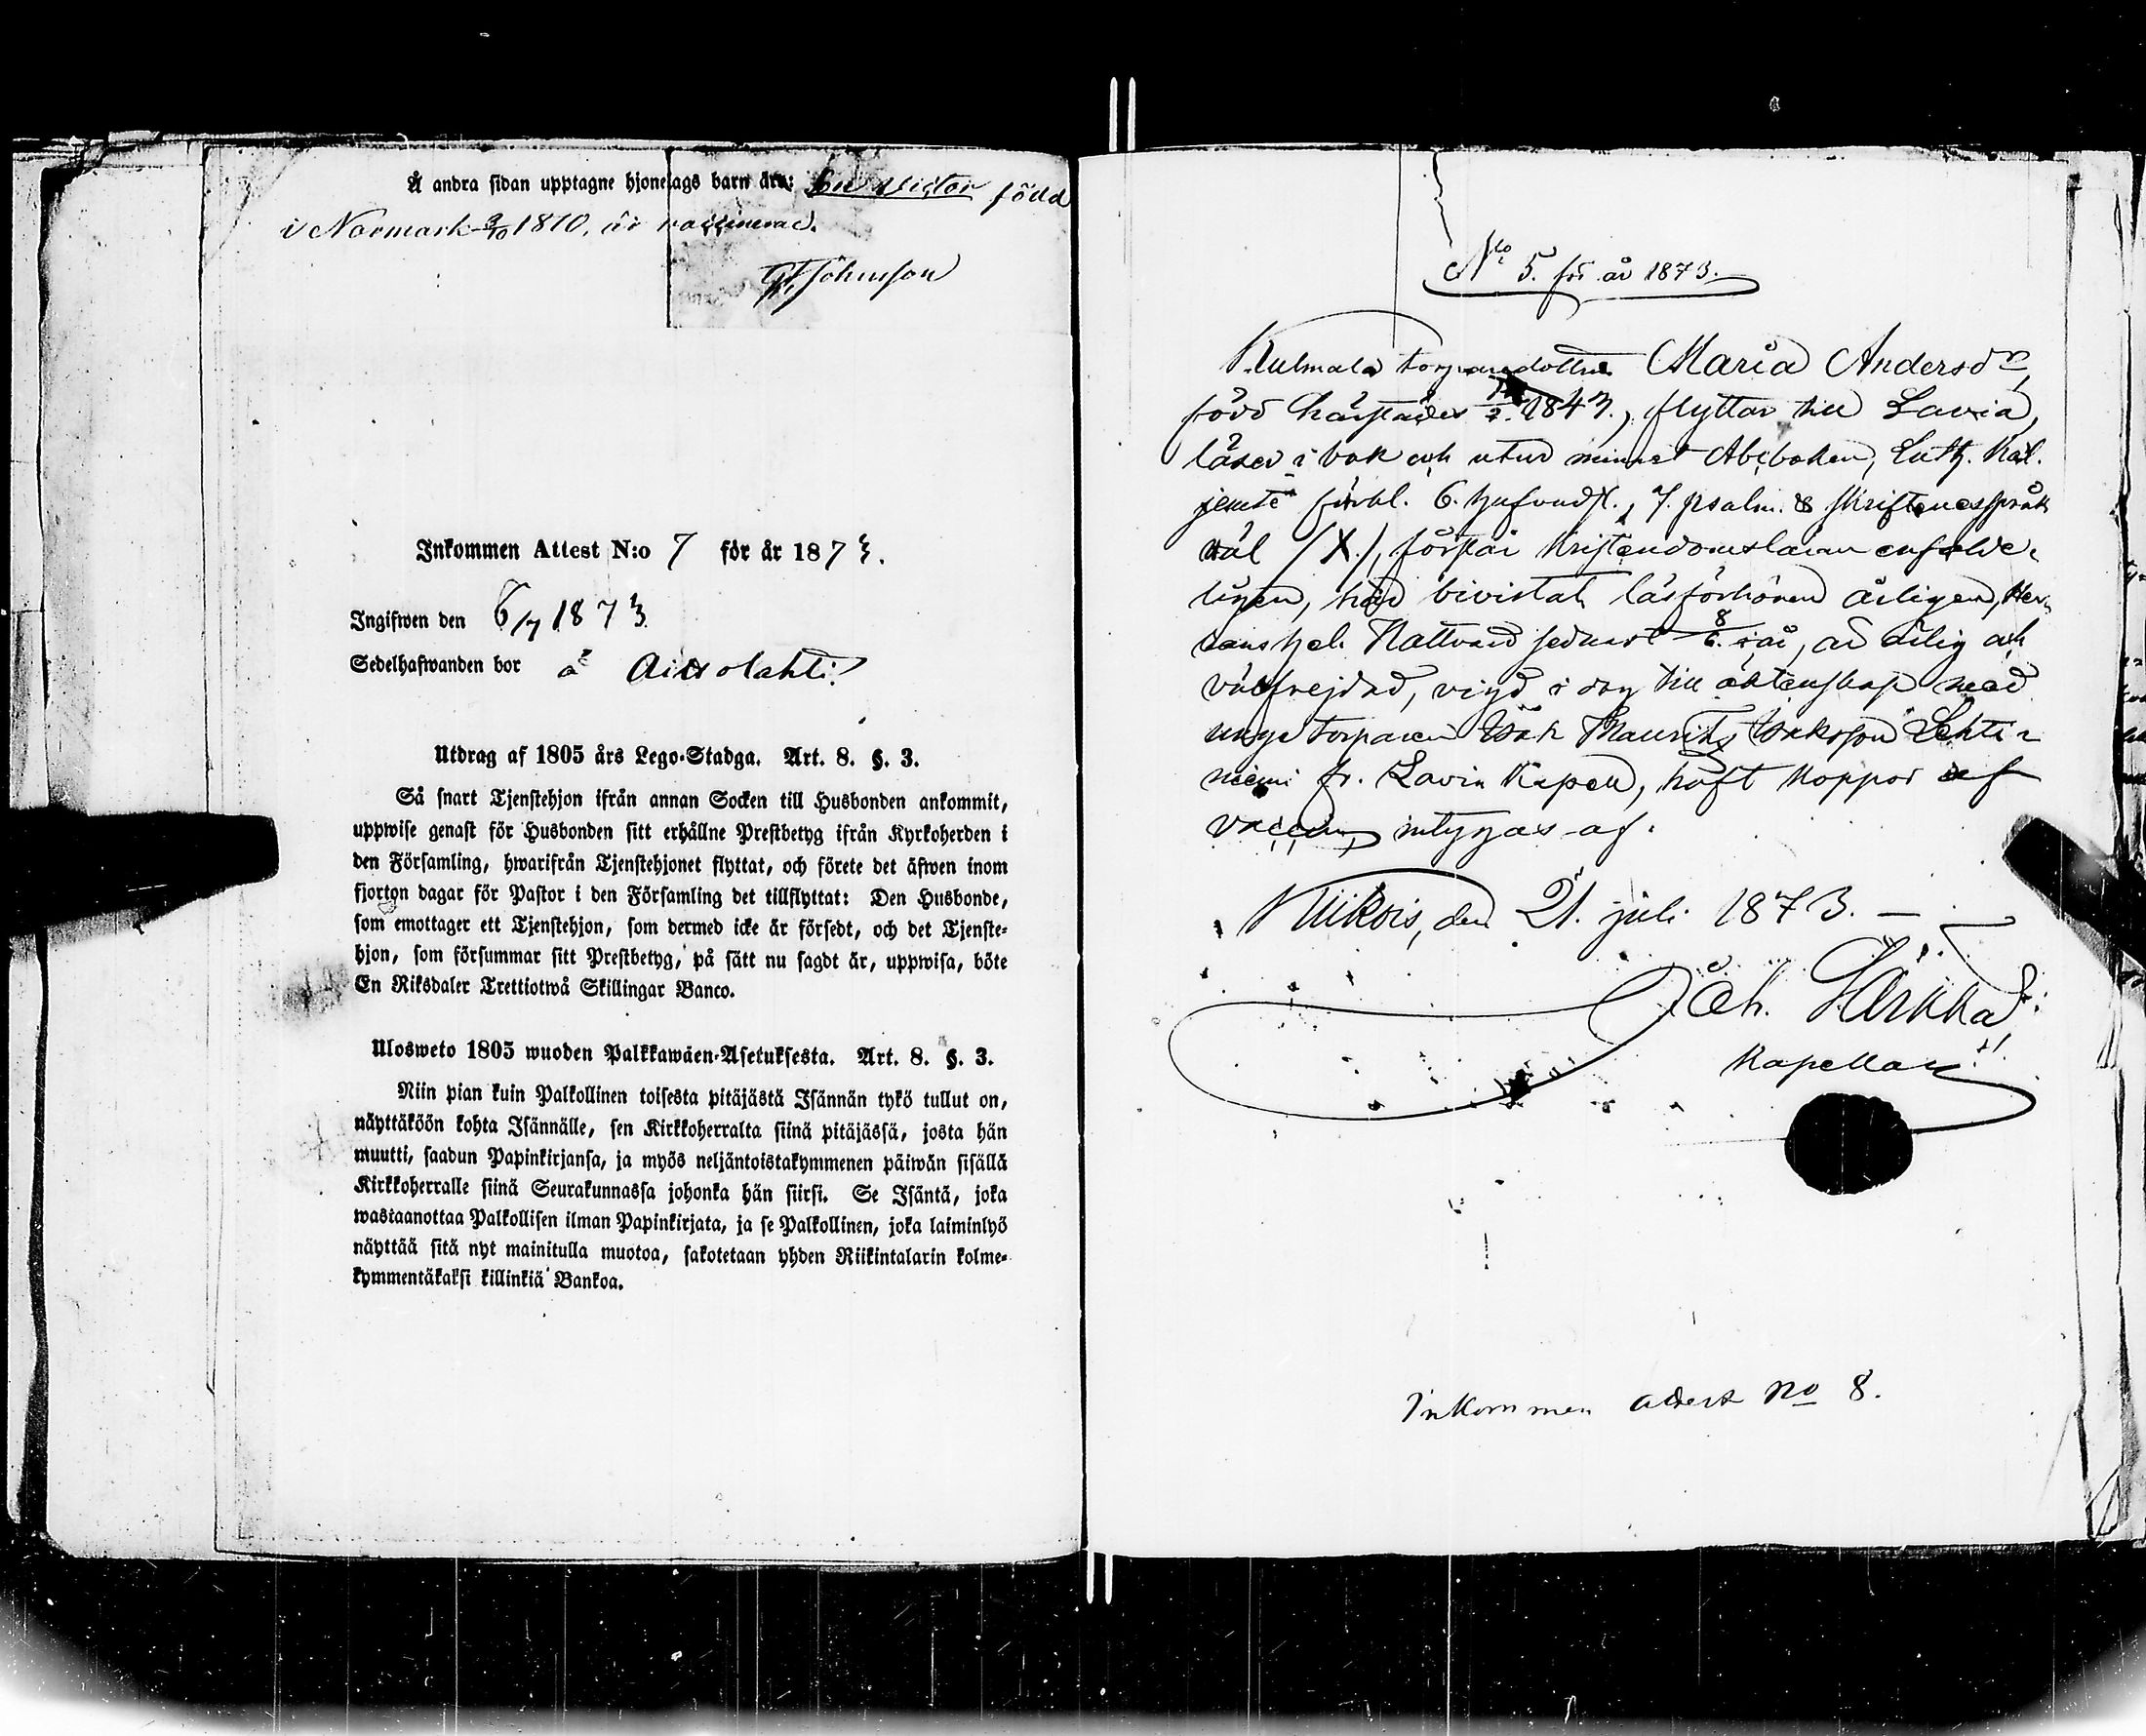 Å andra sidan upptagne hjonelags barn äro: Victor född
i Normark 9/10 1870, är vaccinerad.
Johnsson
Inkommen Attest N:o 7 för år 1873.
Ingifwen den 6/7 1873
Sedelhafwanden bor å
Utdrag af 1805 års Lego-Stadga. Art. 8. §. 3.
Så snart Tjenstehjon ifrån annan Socken till Husbonden ankommit,
uppwise genast för Husbonden sitt erhållne Prestbetyg ifrån Kyrkoherden i
den Församling, hwarifrån Tjenstehjonet flyttat, och förete det äfwen inom
fjorton dagar för Pastor i den Församling det tillflyttat: Den Husbonde,
som emottager ett Tjenstehjon, som dermed icke är försedt, och det Tjenste-
hjon, som försummar sitt Prestbetyg, på sätt nu sagdt är, uppwisa, böte
En Riksdaler Trettiotwå Skillingar Banco.
Ulosweto 1805 wuoden Palkkawäen-Asetuksesta. Art. 8. §. 3.
Niin pian kuin Palkollinen toisesta pitäjästä Isännän tykö tullut on,
näyttäköön kohta Isännälle, sen Kirkkoherralta siinä pitäjässä, josta hän
muutti, saadun Papinkirjansa, ja myös neljäntoistakymmenen päiwän sisällä
Kirkkoherralle siinä Seurakunnassa johonka hän siirsi. Se Isäntä, joka
wastaanottaa Palkollisen ilman Papinkirjata, ja se Palkollinen, joka laiminlyö
näyttää sitä nyt mainitulla muotoa, sakotetaan yhden Riikintalarin kolme-
kymmentäkaksi killinkiä Bankoa.
No 5. för år 1873.
Kulmala torparedottren Maria Andersdr,
född härstädes 1843, flyttar till Lavia,
läser i bok och utur minnet Abcboken, Luth. Kat.
jemte förkl. 6. hufvudst., 7. psalm. & skriftenes språk
väl (X.), förstår kristendomsläran enfalde-
ligen, har bivistat läsförhören årligen, Her-
rans hel. Nattvard sednast 8/6 i år, är ärlig och
välfrejdad, vigd i dag till äktenskap med
unge torparen Isak Maurits Isaksson Lehti-
niemi fr. Lavia Kapell, haft koppor af
vaccin, intygas af.
Kiikois, den 21. juli 1873. —
Joh. Särkkä
Kapellan
Inkommen attest No 8.